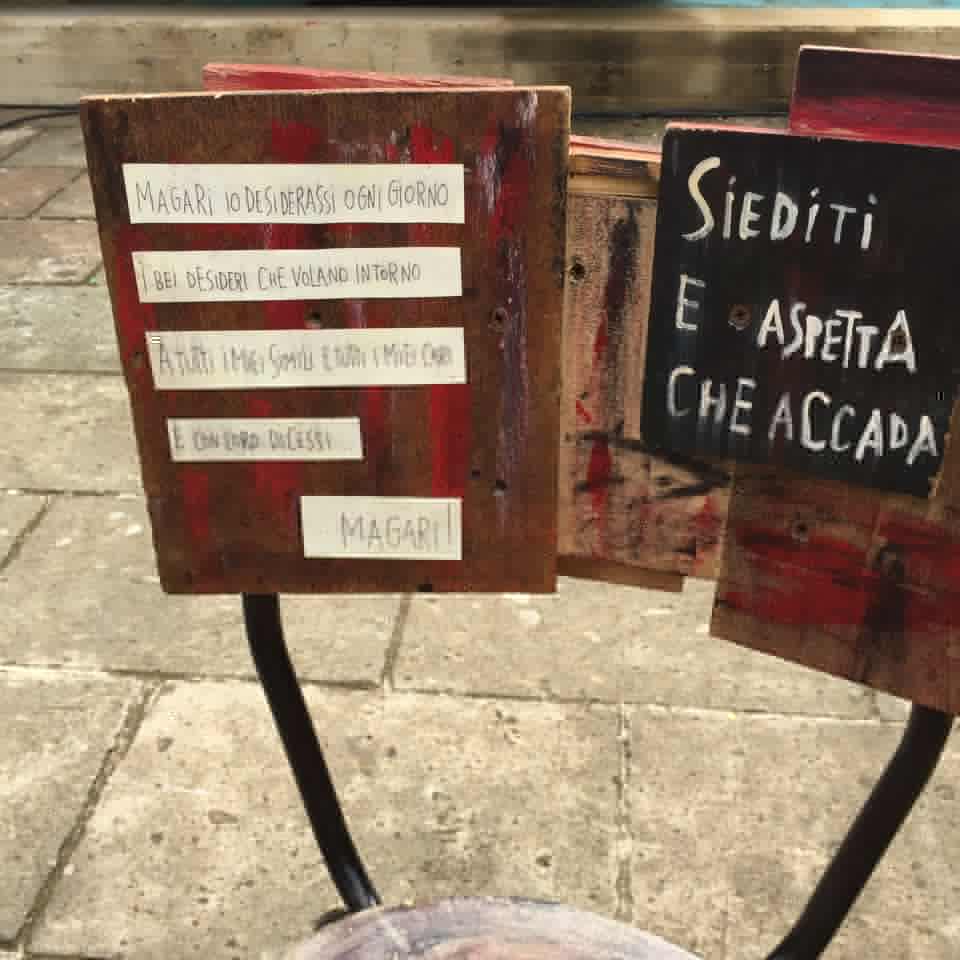 MAGARI IO DESIDERASSI OGNI GIORNO
I BEI DESIDERI CHE VOLANO INTORNO
A TUTTI I MIEI SIMILI E TUTTI I MIEI CARI
E CON LORO DICESSI
MAGARI!
SIEDITI
E ASPETTA
CHE ACCADA